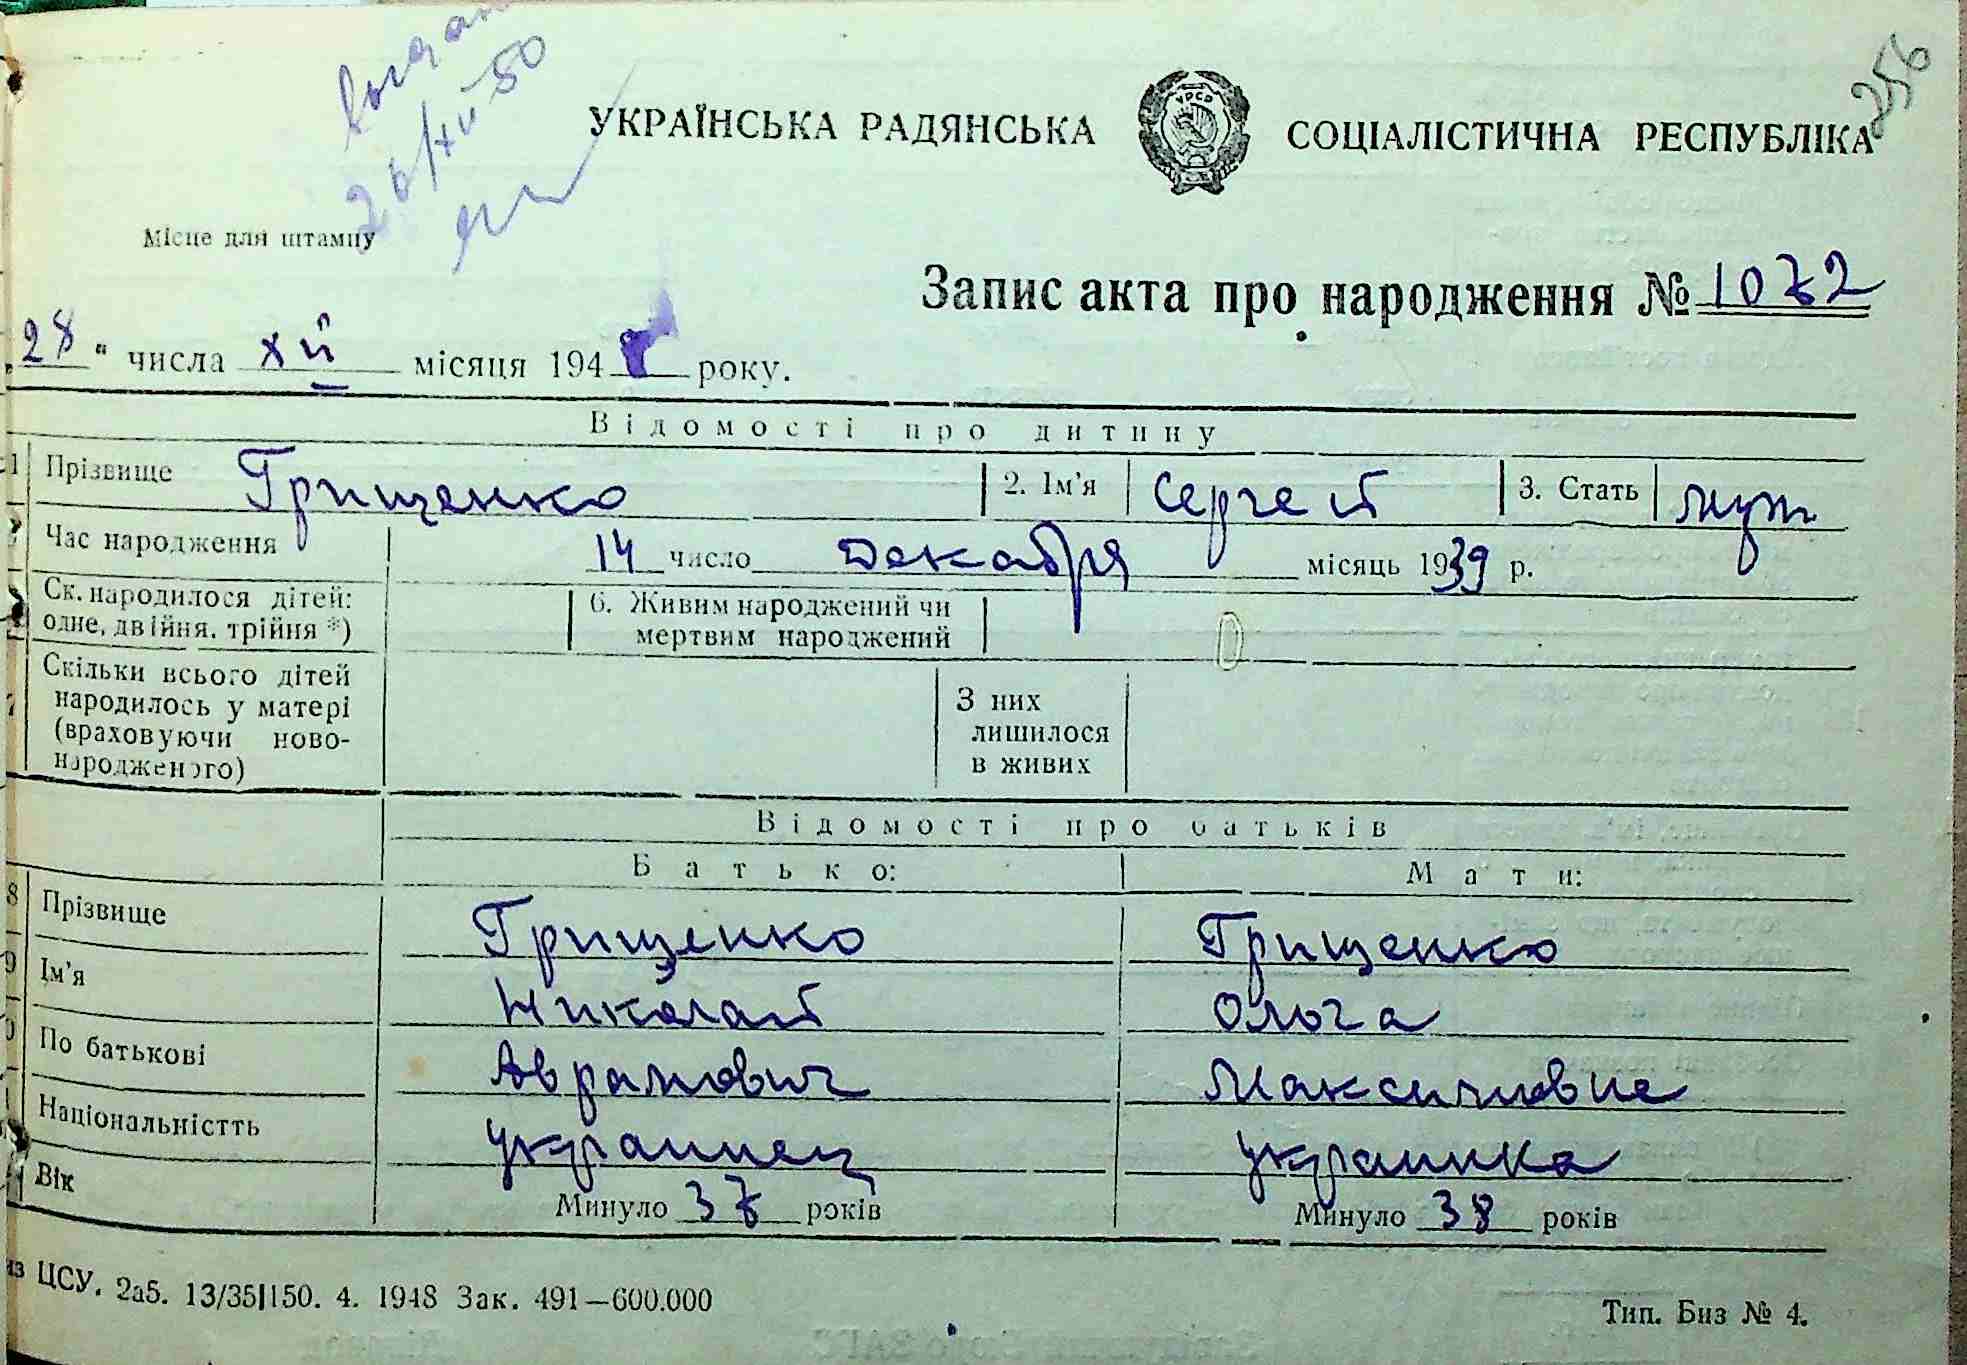 256
26/XII-50
УКРАЇНСЬКА РАДЯНСЬКА СОЦІАЛІСТИЧНА РЕСПУБЛІКА
УРСР
Місце для штампу
Запис акта про народження № 1072
„28“ числа XII місяця 1948 року.
Відомості про дитину
1 Прізвище Грищенко 2. Ім'я Сергей 3. Стать муж
Час народження 14 число декабря місяць 1939 р.
Ск. народилося дітей: 6. Живим народжений чи
одне, двійня, трійня *) мертвим народжений
Скільки всього дітей
народилось у матері З них
(враховуючи ново- лишилося
народженого) в живих
Відомості про батьків
Батько: Мати:
8 Прізвище Грищенко Грищенко
9 Ім'я Николай Ольга
0 По батькові Аврамович Максимовне
Національністть украинец украинка
Вік Минуло 37 років Минуло 38 років
из ЦСУ. 2аб. 13/35|150. 4. 1948 Зак. 491—600.000 Тип. Биз № 4.